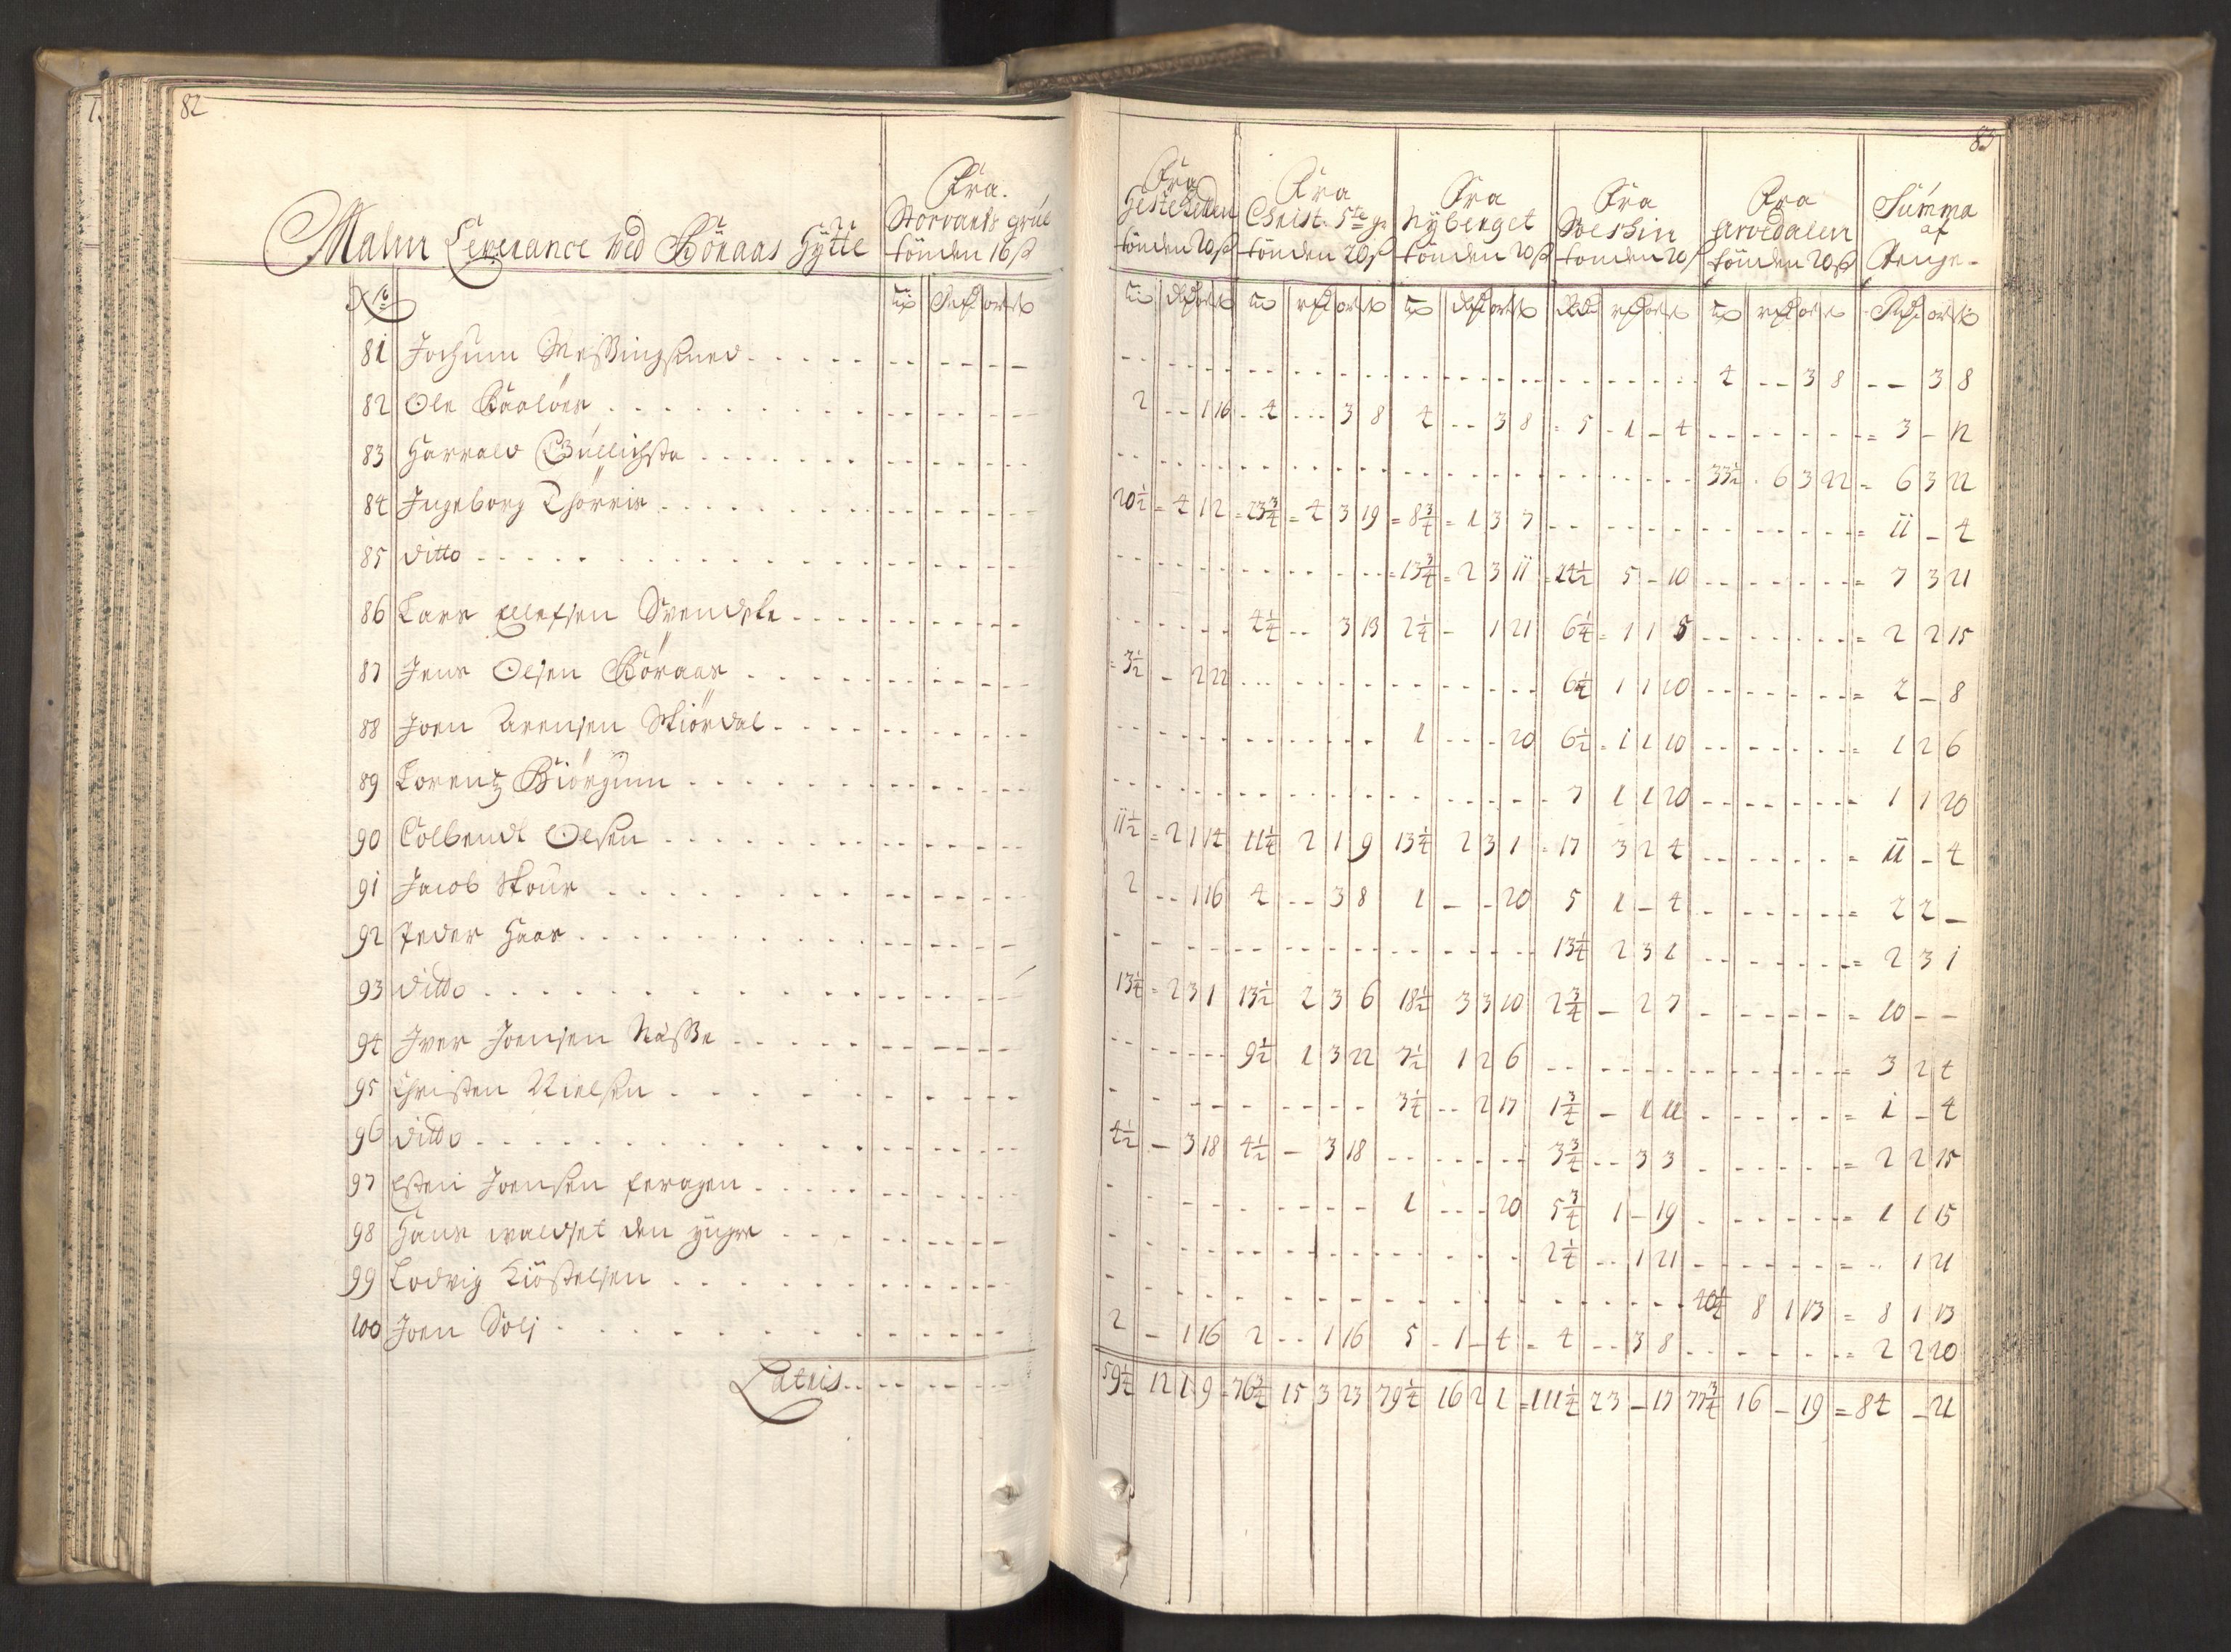 82
83
Malm Leverance ved Röraas Hÿtte
Fra Storvarts grube tönden 16 ß
Fra tönden 20 ß
Fra Christ: 5te gr: tönden 20 ß
Fra Nÿberget tönden 20 ß
Fra tönden 20 ß
Fra Arvedalen tönden 20 ß
Summa af Penge
No
81 Jochum Messingsmed - - 4 - - 3 8 - - 3 8
82 Ole 2 - - 1 16 - 4 - - 3 8 4 - - 3 8 = 5 - 1 - 4 - - = 3 - 12
83 Harrald - - 33½ 6 3 22 = 6 3 22
84 Ingeborg - - 20½ = 4 1 2 = 23¾ = 4 3 19 = 8¾ = 1 3 7 - - = 11 - 4
85 ditto - - = 13¾ = 2 3 11 = 24½ 5 - 10 - - = 7 3 21
86 Lars Ellefsen - - 4¼ - - 3 13 2¼ - 1 21 6¼ = 1 1 5 - - = 2 2 15
87 Jens Olsen Röraas - - = 3½ - 2 22 - - 6½ 1 1 10 - - = 2 - 8
88 Joen Arensen Stiördal - - 1 - - 20 6½ = 1 1 10 - - = 1 2 6
89 Lorentz Biörgum - - 7 1 1 20 - - 1 1 20
90 Colbendt Olsen - - 11½ = 2 1 14 11¼ 2 1 9 13¼ 2 3 1 = 17 3 2 4 - - = 11 - 4
91 Jacob - - 2 - - 1 16 4 - - 3 8 1 - - 20 5 1 - 4 - - = 2 2 -
92 Peder Haar - - 13¼ 2 3 1 - - = 2 3 1
93 ditto - - 13¼ = 2 3 1 13½ 2 3 6 18½ 3 3 10 2¾ - 2 7 - - = 10 - -
94 Iver Joensen - - 9½ 1 3 22 7½ 1 2 6 - - = 3 2 4
95 Christen Nielsen - - 3¼ - - 2 17 1¾ - 1 11 - - = 1 - 4
96 ditto - - 4½ - 3 18 4½ - 3 18 - - 3¾ - - 3 3 - - = 2 2 15
97 Esten Joensen feragen - - 1 - - 20 5¾ 1 - 19 - - = 1 1 15
98 Hans waldset den yngre - - 2¼ - - 1 21 - - = - - 1 21
99 Lodvig - - 40¼ 8 1 13 = 8 1 13
100 Joen - - 2 - 1 16 2 - - 1 16 5 - 1 - 4 = 4 - - 3 8 - - = 2 2 20
Lateris - - 59¼ 12 1 9 = 76¾ 15 3 23 79¼ 16 2 1 = 111¼ 23 - 17 77¾ 16 - 19 = 84 - 21